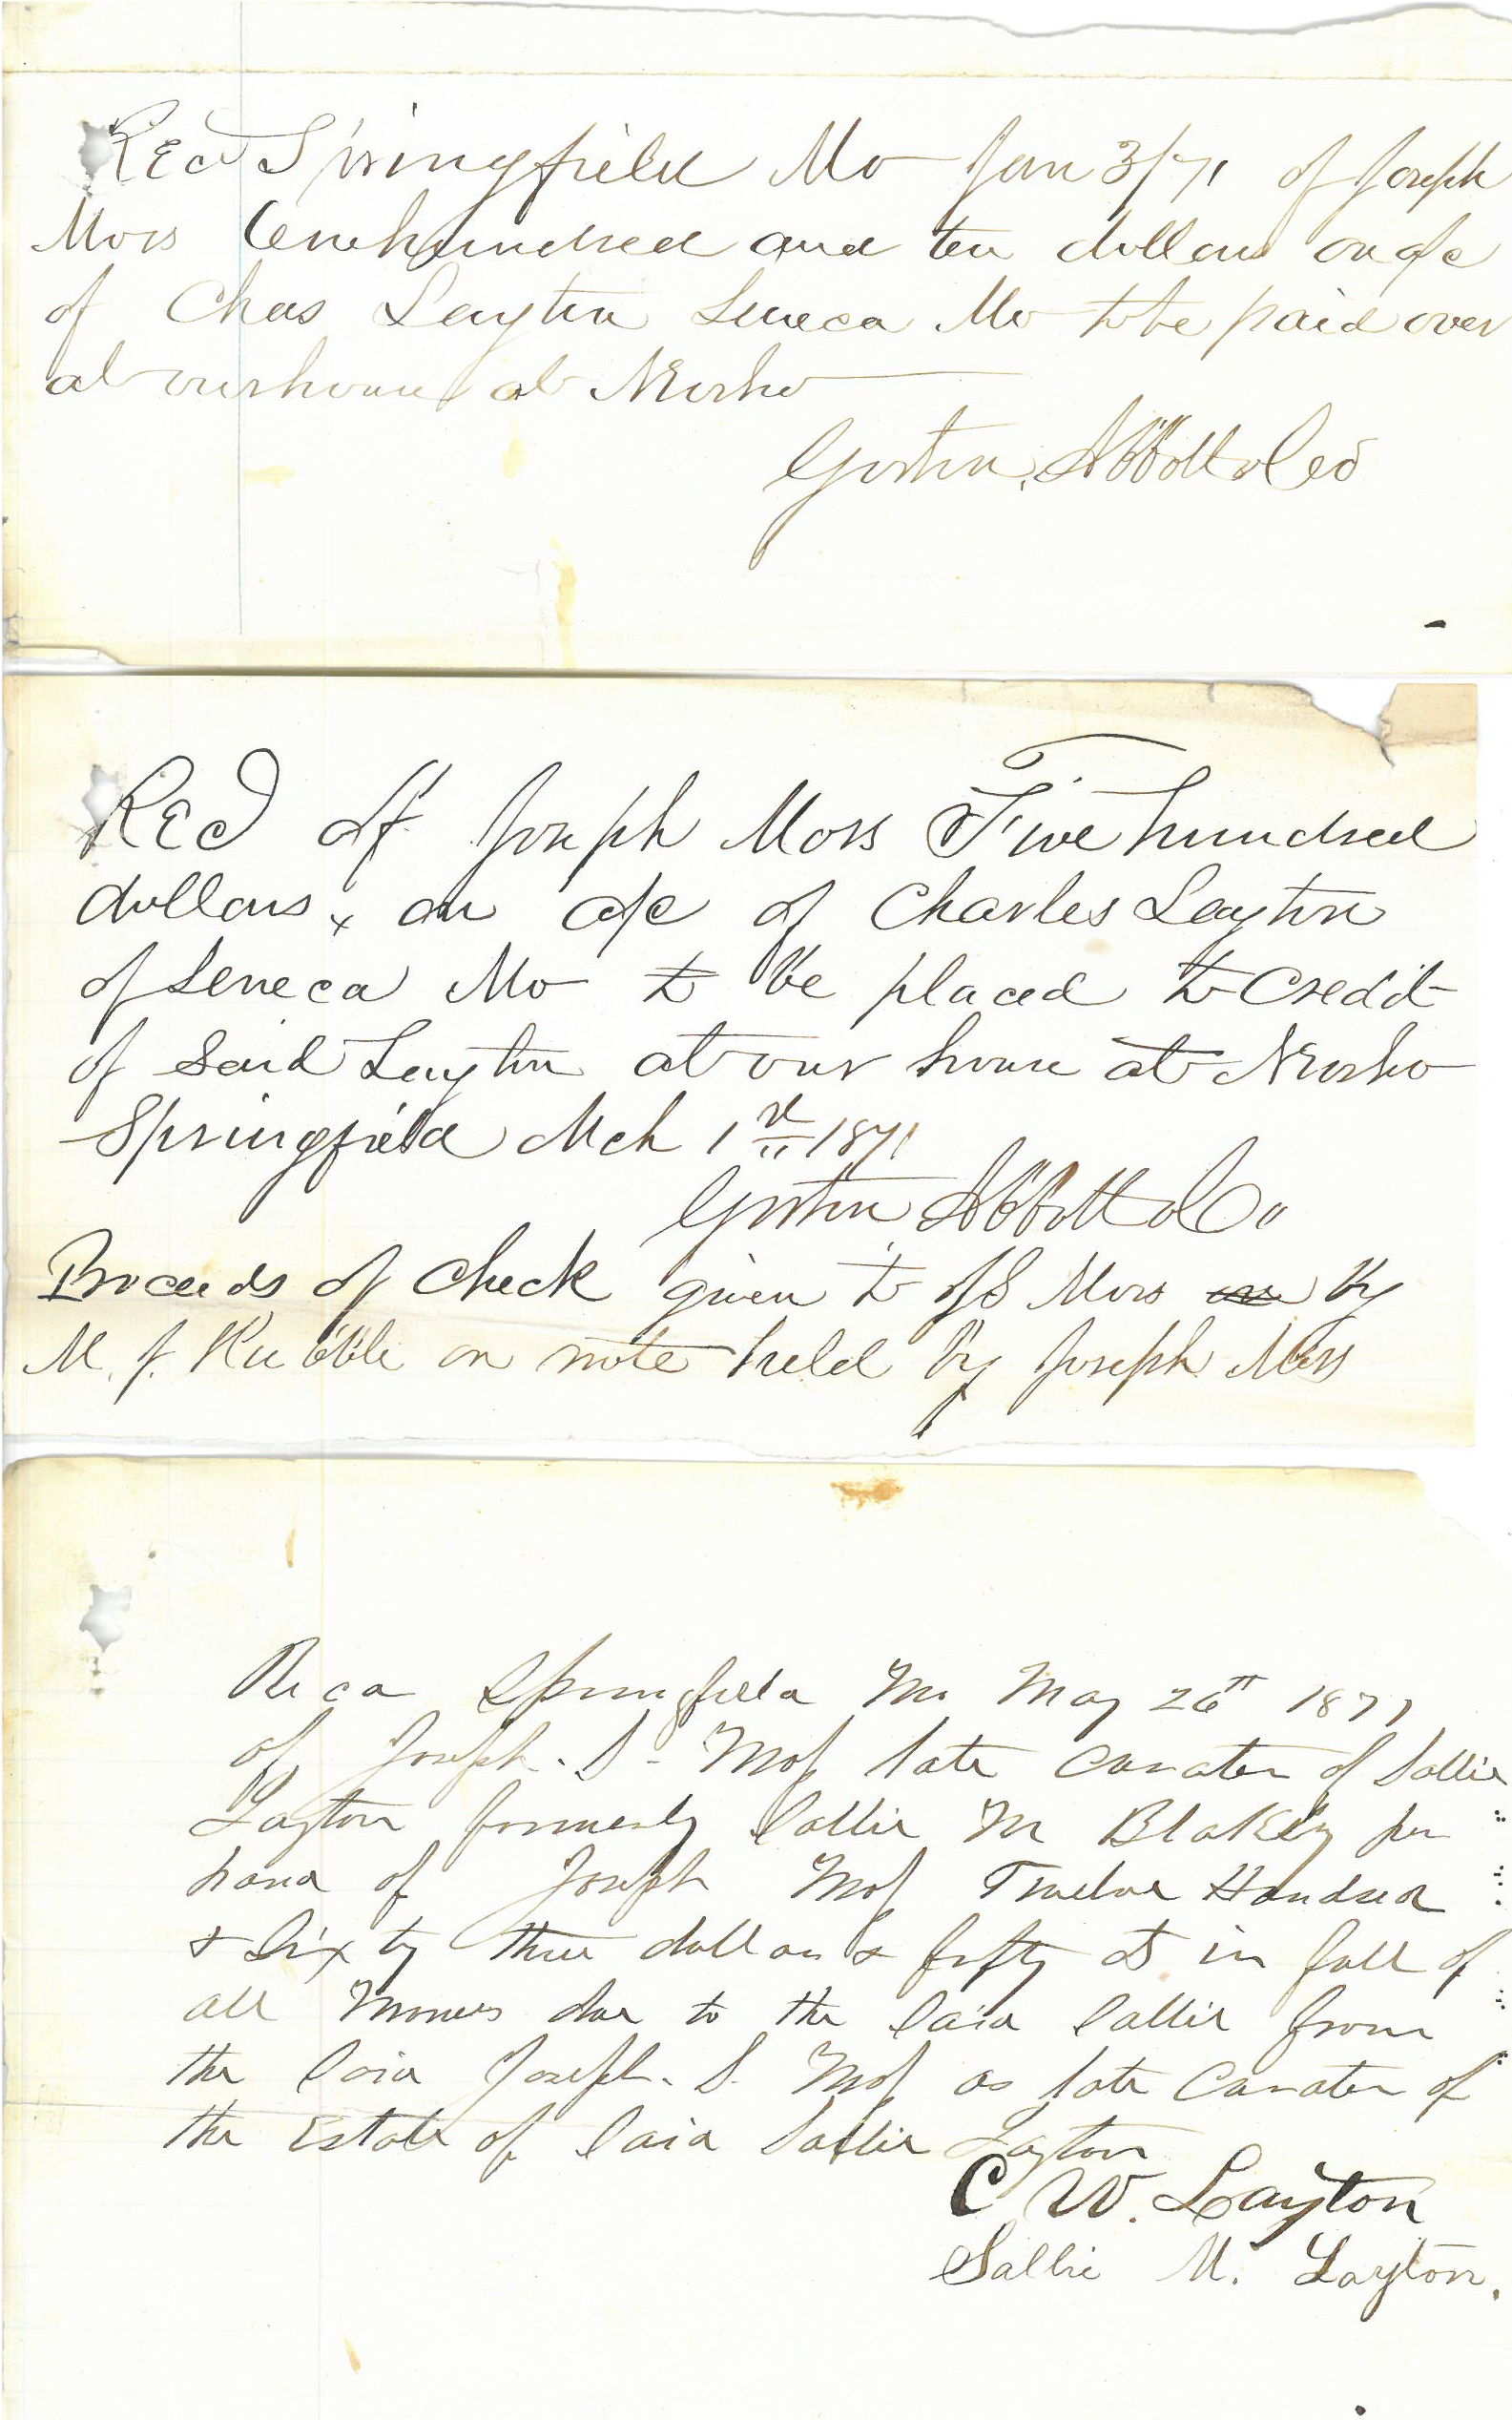 Recd Springfield Mo Jan 3/71 of Joseph
Moss One hundred and ten dollars on a/c
of Chas Layton Seneca Mo to be paid over
at our house at Neosho
Abbott & Co
Recd of Joseph Moss Five hundred
dollars on a/c of Charles Layton
of Seneca Mo to be placed to Credit
of Said Layton at our house at Neosho
Springfield Mch 1st 1871
Abbott & Co
Proceeds of Check given to J S Moss by
M. J. Hubble on note held by Joseph Moss
Recd Springfield Mo May 26th 1871
of Joseph. S. Moss late Curator of Sallie
Layton formerly Sallie M Blakey per
hand of Joseph Moss Twelve Hundred
& Sixty three dollars & fifty cts in full of
all Moneys due to the Said Sallie from
the Said Joseph. S. Moss as late Curator of
the Estate of Said Sallie Layton
C W. Layton
Sallie M. Layton.